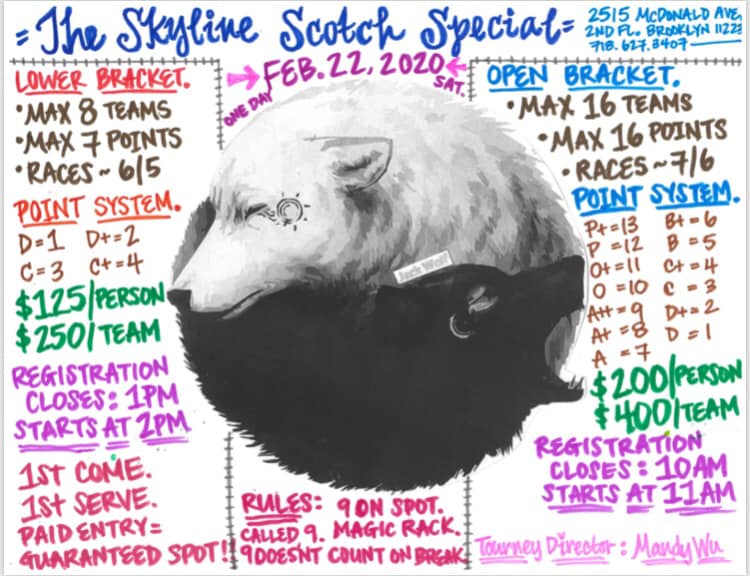 =The Skyline Scotch Special=
2515 McDONALD AVE,
2ND FL. BROOKLYN 11223
718.627.3407
ONE DAY
FEB.22,2020
SAT.
LOWER BRACKET.
•MAX 8 TEAMS
•MAX 7 POINTS
•RACES~6/5
POINT SYSTEM.
D=1 D+=2
C=3 C+=4
$125/PERSON
$250/TEAM
REGISTRATION
CLOSES: 1PM
STARTS AT 2PM
1ST COME.
1ST SERVE.
PAID ENTRY=
GUARANTEED SPOT!!
Jack Wolf
RULES: 9 ON SPOT.
CALLED 9. MAGIC RACK.
9 DOESNT COUNT ON BREAK
OPEN BRACKET.
•MAX 16 TEAMS
•MAX 16 POINTS
•RACES~7/6
POINT SYSTEM.
P+=13 B+=6
P=12 B=5
O+=11 C+=4
O=10 C=3
A++=9 D+=2
A+=8 D=1
A=7
$200/PERSON
$400/TEAM
REGISTRATION
CLOSES: 10AM
STARTS AT 11AM
Tourney Director: Mandy Wu